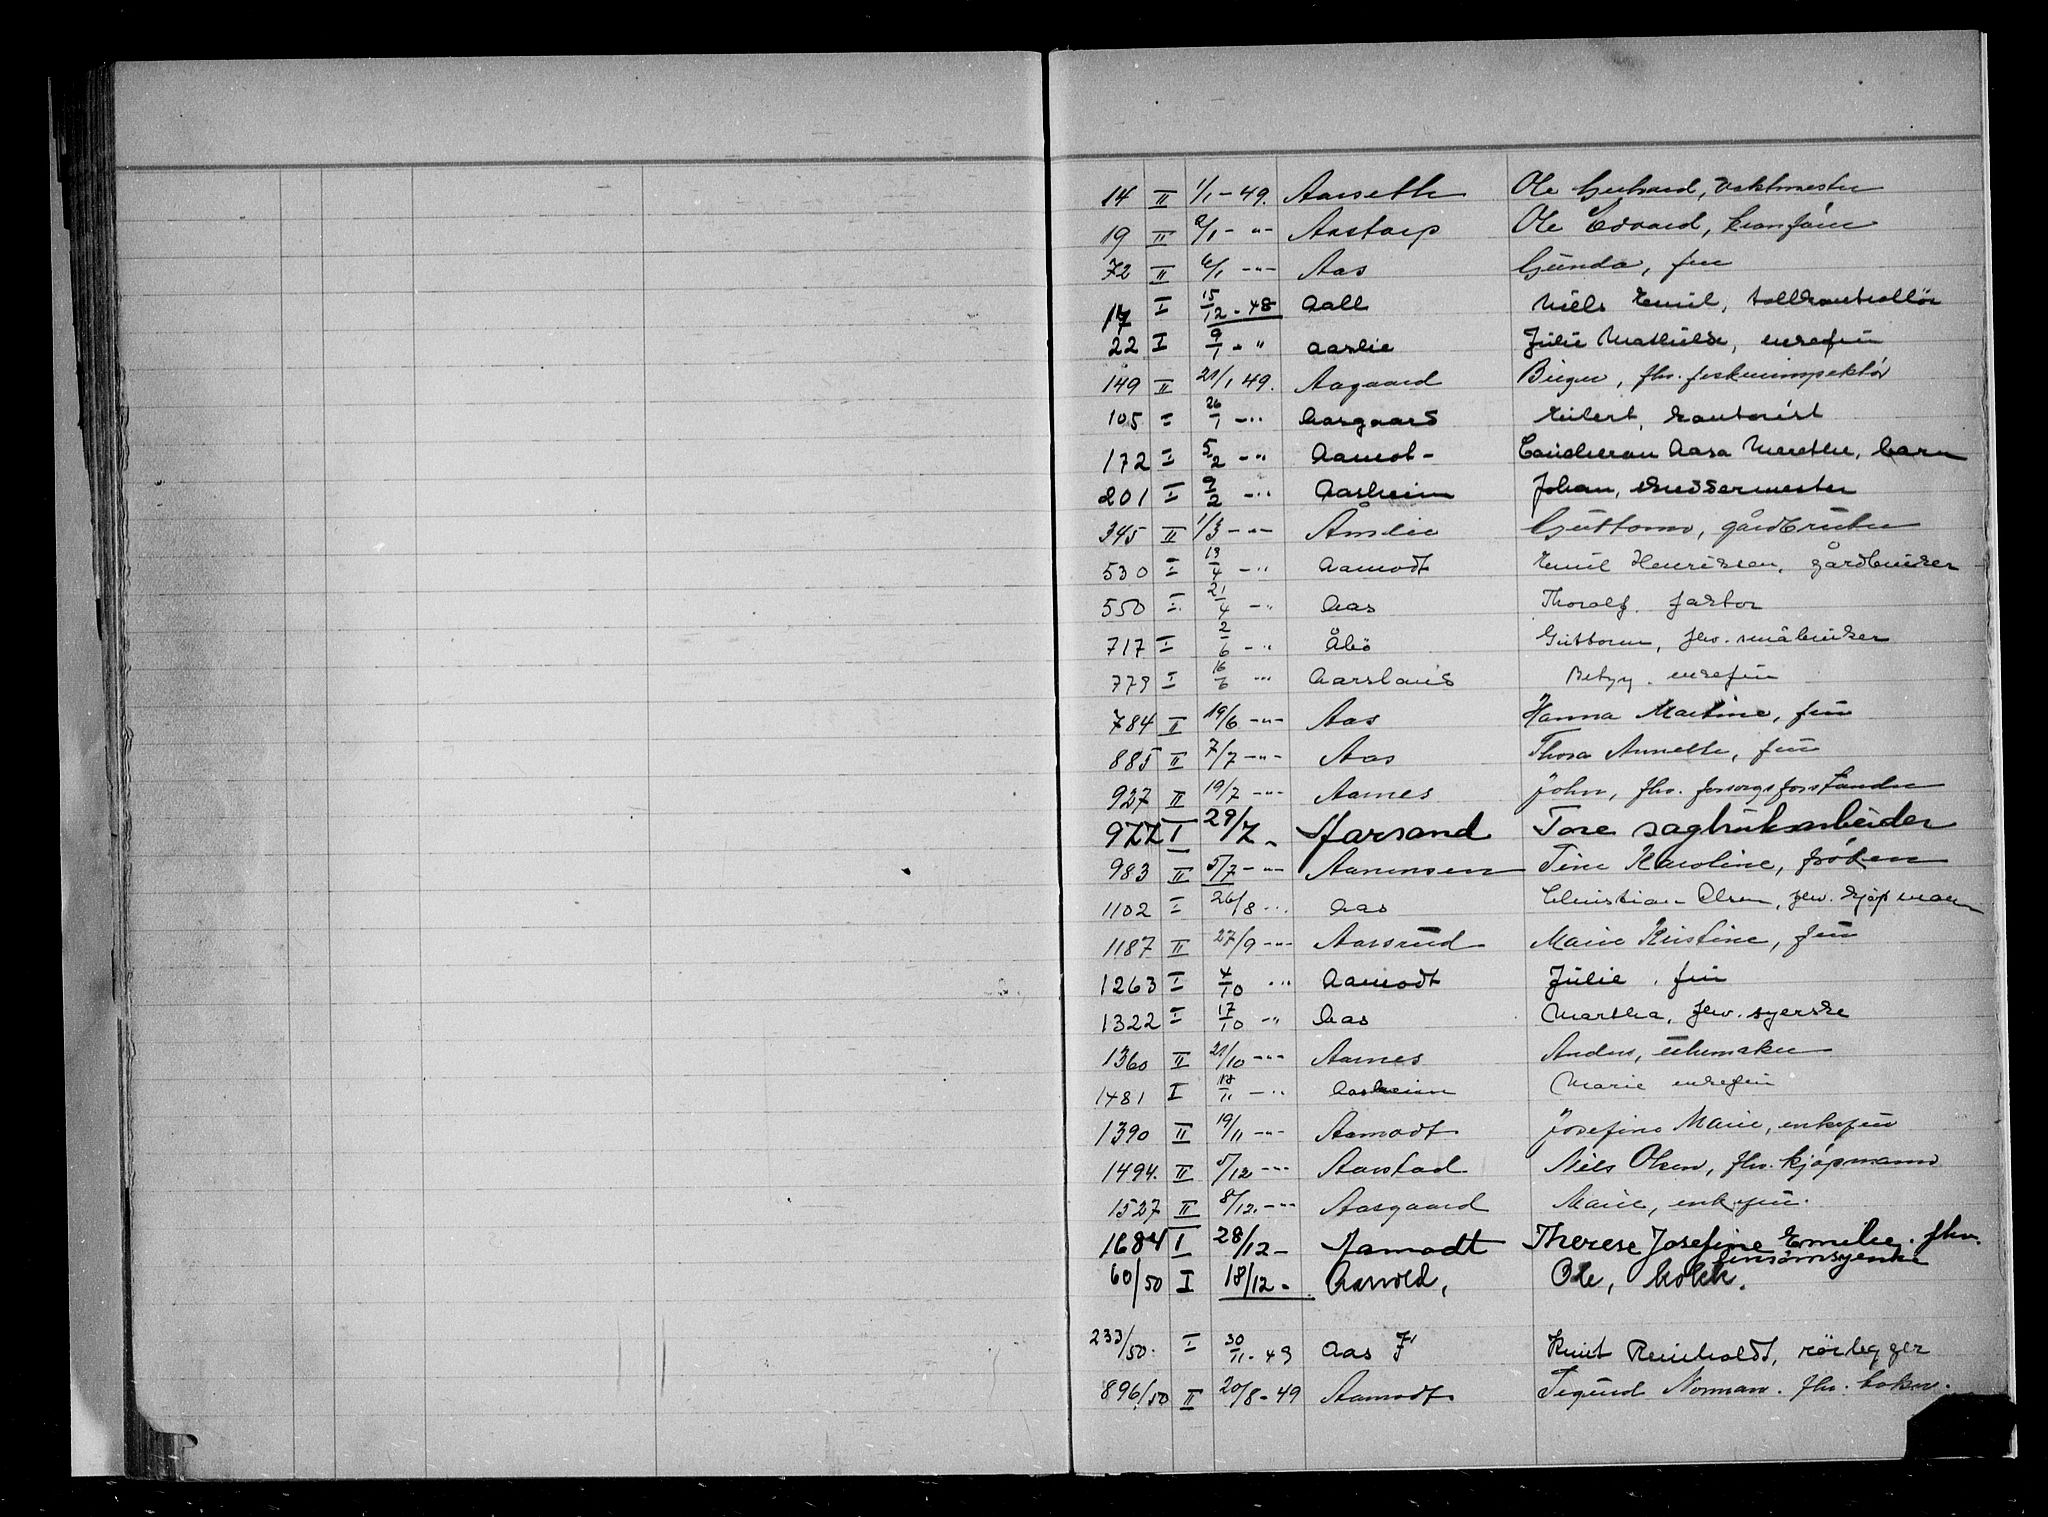 14 II 1/1 - 49. Aarseth Ole Gerhard, vaktmester
19 II 2/1 - " - Aastorp Ole Edvard, kranfører
72 II 6/1 - " - Aas Gunda, fru
17 I 15/12 - 48 Aall Niels Emil, tollkontrollør
22 I 9/1 - " Aaslie Julie Mathilde, enkefru
149 II 21/1 49. Aagaard Birger, fhv. fiskeriinspektør
105 I 26/1 - " Aasgaard Eilert, kontorist
172 I 5/2 - " Aamot - Aasa Merethe, barn
201 I 9/2 - " Aasheim Johan, skreddermester
345 II 1/3 - " - Åmlie Guttorm, gårdbruker
530 I 13/4 - " Aamodt Emil Henriksen, gårdbruker
550 I 21/4 - " Aas Thoralf. faktor
717 I 2/6 - " Åbø Guttorm, fhv. småbruker
779 I 16/6 " Aarsland Betzy. enkefru
784 II 19/6 - " - Aas Hanna Martine, fru
885 II 7/7 - " - Aas Thora Annette, fru
927 II 19/7 - " - Aarnes John, fhv. forsorgsforstander
977 I 29/7 - Aarsand Tore sagbruksarbeider
983 II 5/7 - " - Aanensen Tine Karoline, frøken
1102 I 26/8 " Aas Christian Olsen, fhv. kjøpmann
1187 II 27/9 - " - Aarsrud Marie Kristine, fru
1263 I 4/10 " Aamodt Julie, fru
1322 I 17/10 - " Aas Martha, fhv. syerske
1360 II 21/10 - " - Aarnes Anders, urmaker
1481 I 18/11 - " Aasheim Marie enkefru
1390 II 19/11 - " - Aamodt Josefine Marie, enkefru
1494. II 5/12 - " - Aarstad Niels Olsen, fhv. kjøpmann
1527 II 8/12. - " - Aasgaard Marie, enkefru.
1684 I 28/12 - Aamodt Therese Josefine Emilie. fhv.
linsømsyerske
60/50 I 18/12 - Aarvold, Ole, kokk.
233/50. I 30/11 - 49 Aas Knut Reinholdt, rørlegger
896/50 II 20/8 - 49 Aamodt Norman. fhv. baker.